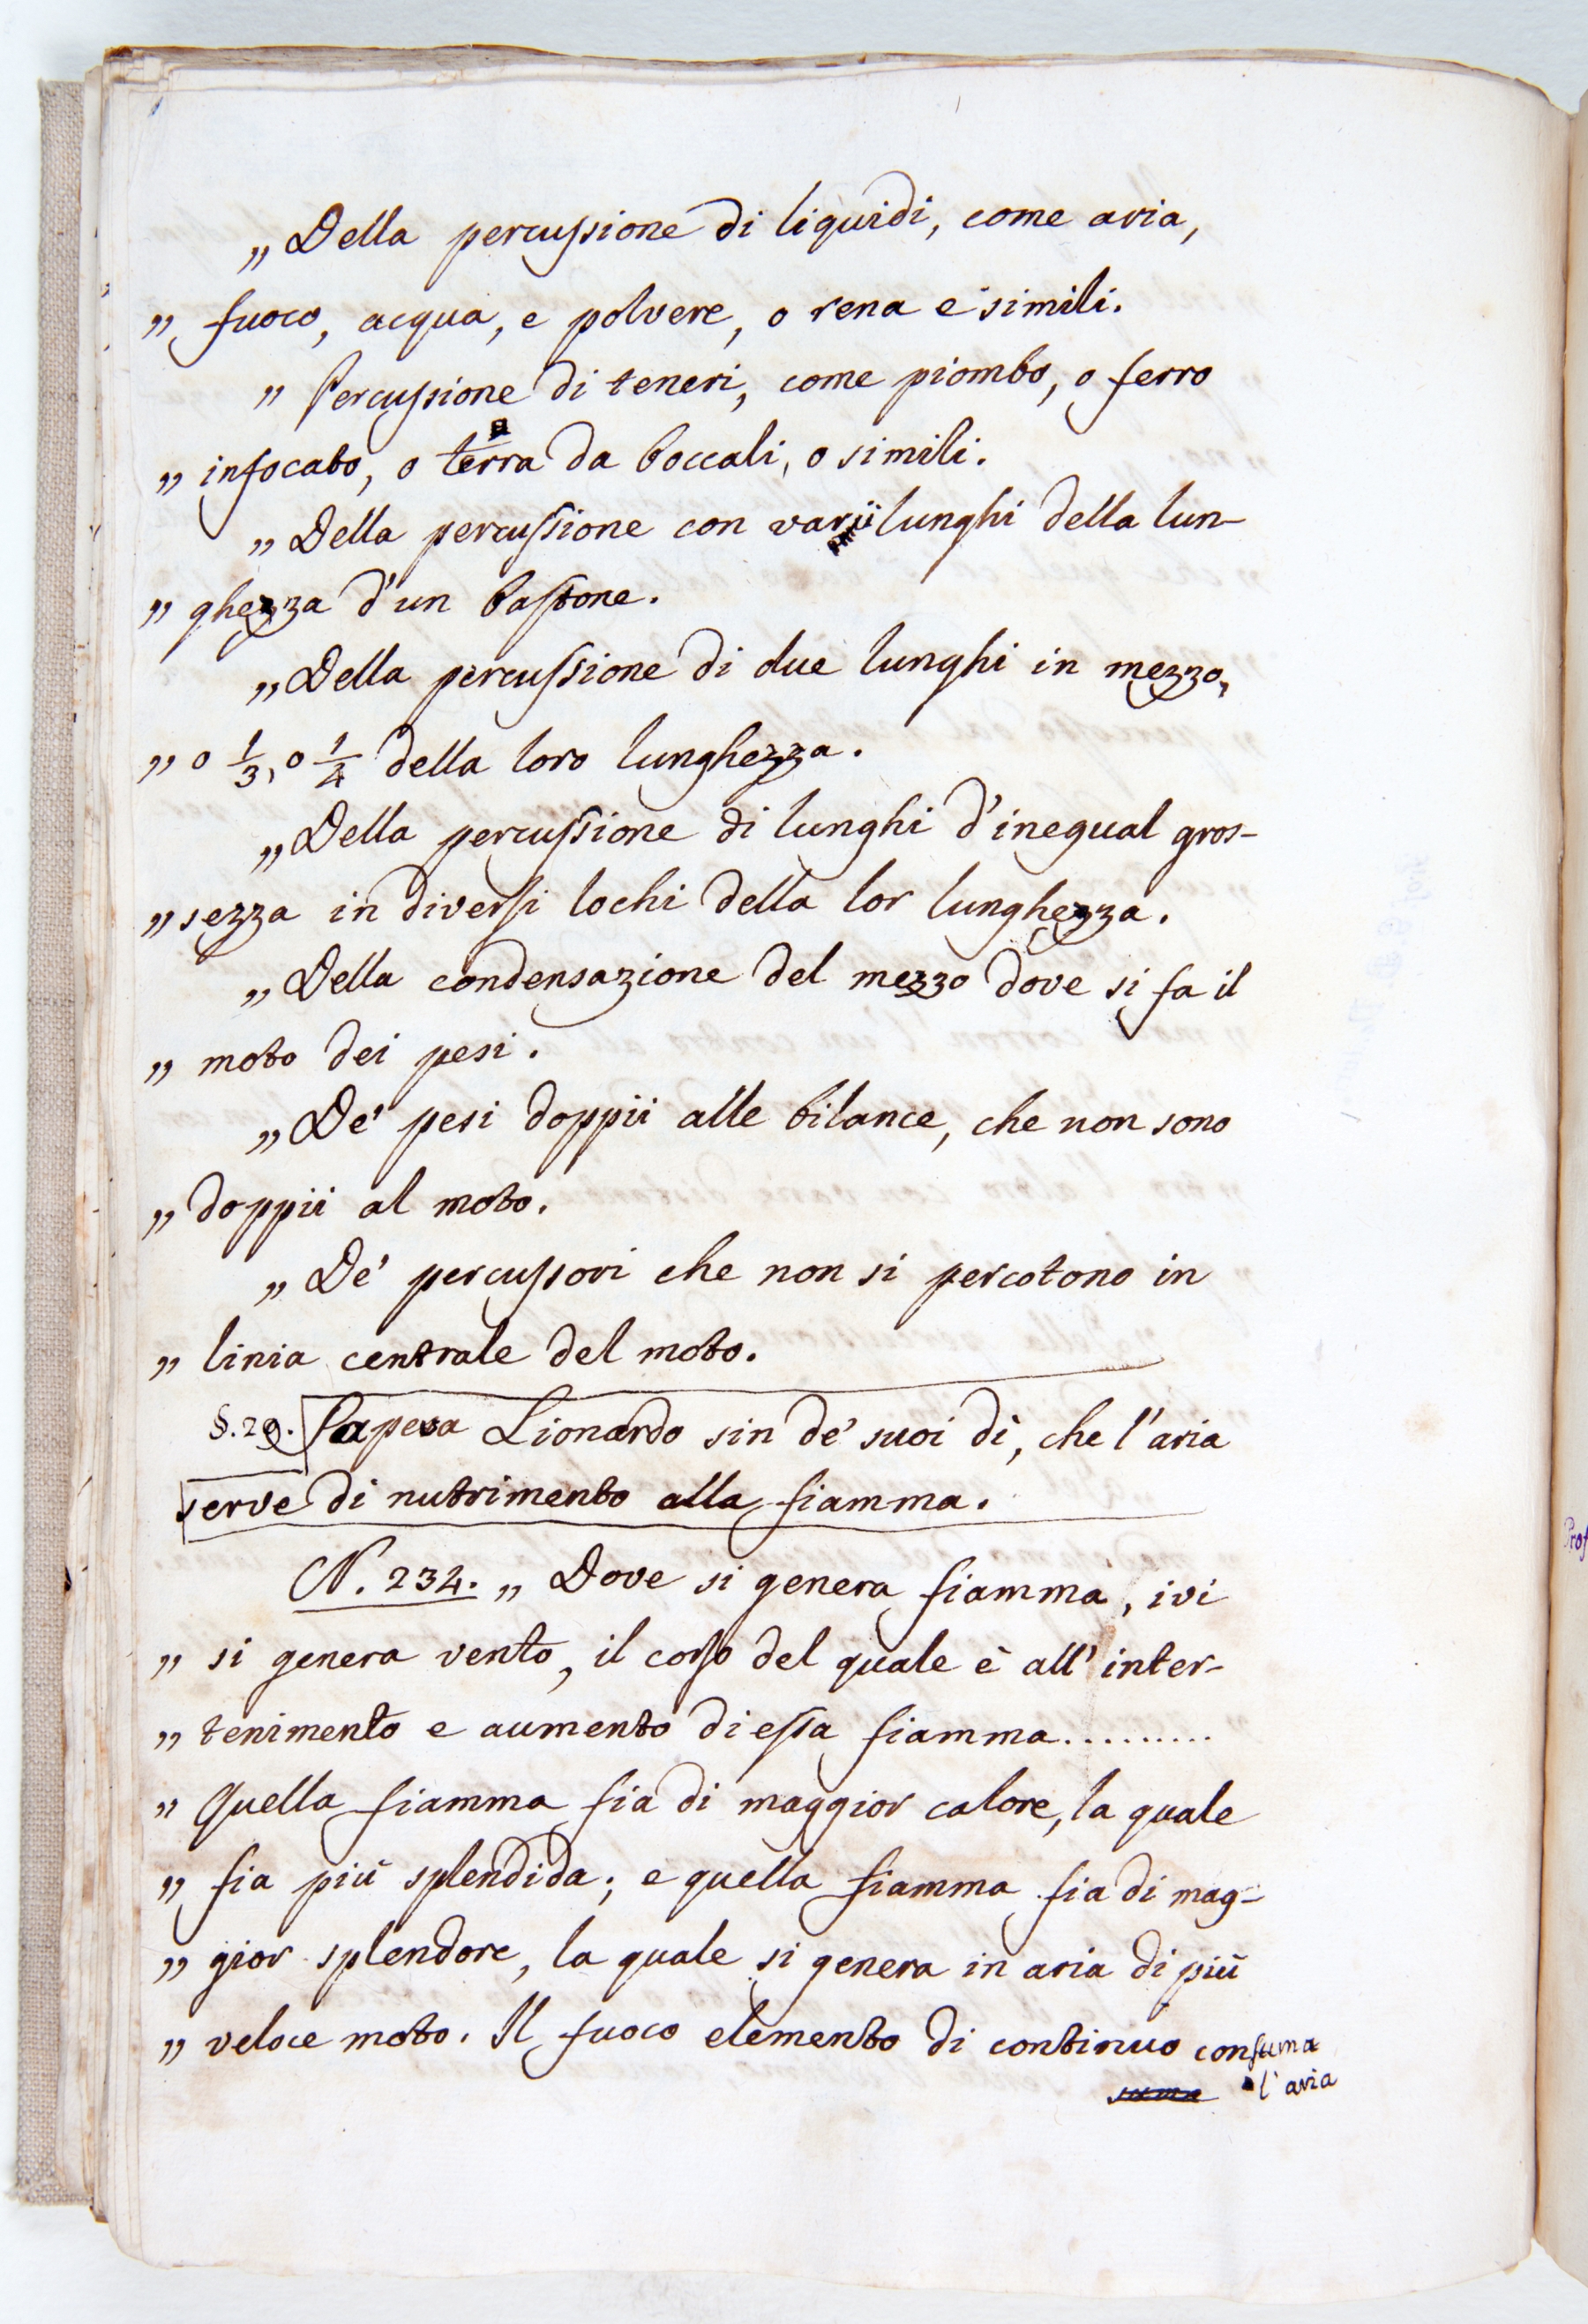 „Della percussione di liquidi, come aria,
„ fuoco, acqua, e polvere, o rena e simili.
„ Percussione di teneri, come piombo, o ferro
„ infocato, o terra da boccali, o simili.
„Della percussione con varii lunghi della lun-
„ ghezza d'un bastone.
„Della percussione di due lunghi in mezzo,
„ o 1/3, o 1/4 della loro lunghezza.
„Della percussione di lunghi d'inegual gros-
„ sezza in diversi lochi della lor lunghezza.
„Della condensazione del mezzo dove si fa il
„ moto dei pesi.
„De' pesi doppii alle bilance, che non sono
„ doppii al moto.
„De' percussori che non si percotono in
„ linia centrale del moto.
§.29. Sapeva Lionardo sin de' suoi dì, che l'aria
serve di nutrimento alla fiamma.
N. 232. „ Dove si genera fiamma, ivi
„ si genera vento, il corso del quale è all' inter-
„ tenimento e aumento di essa fiamma.........
„ Quella fiamma fia di maggior calore, la quale
„ fia più splendida; e quella fiamma fia di mag-
„ gior splendore, la quale si genera in aria di più
„ veloce moto. Il fuoco elemento di continuo consuma
suma l'aria
Prof